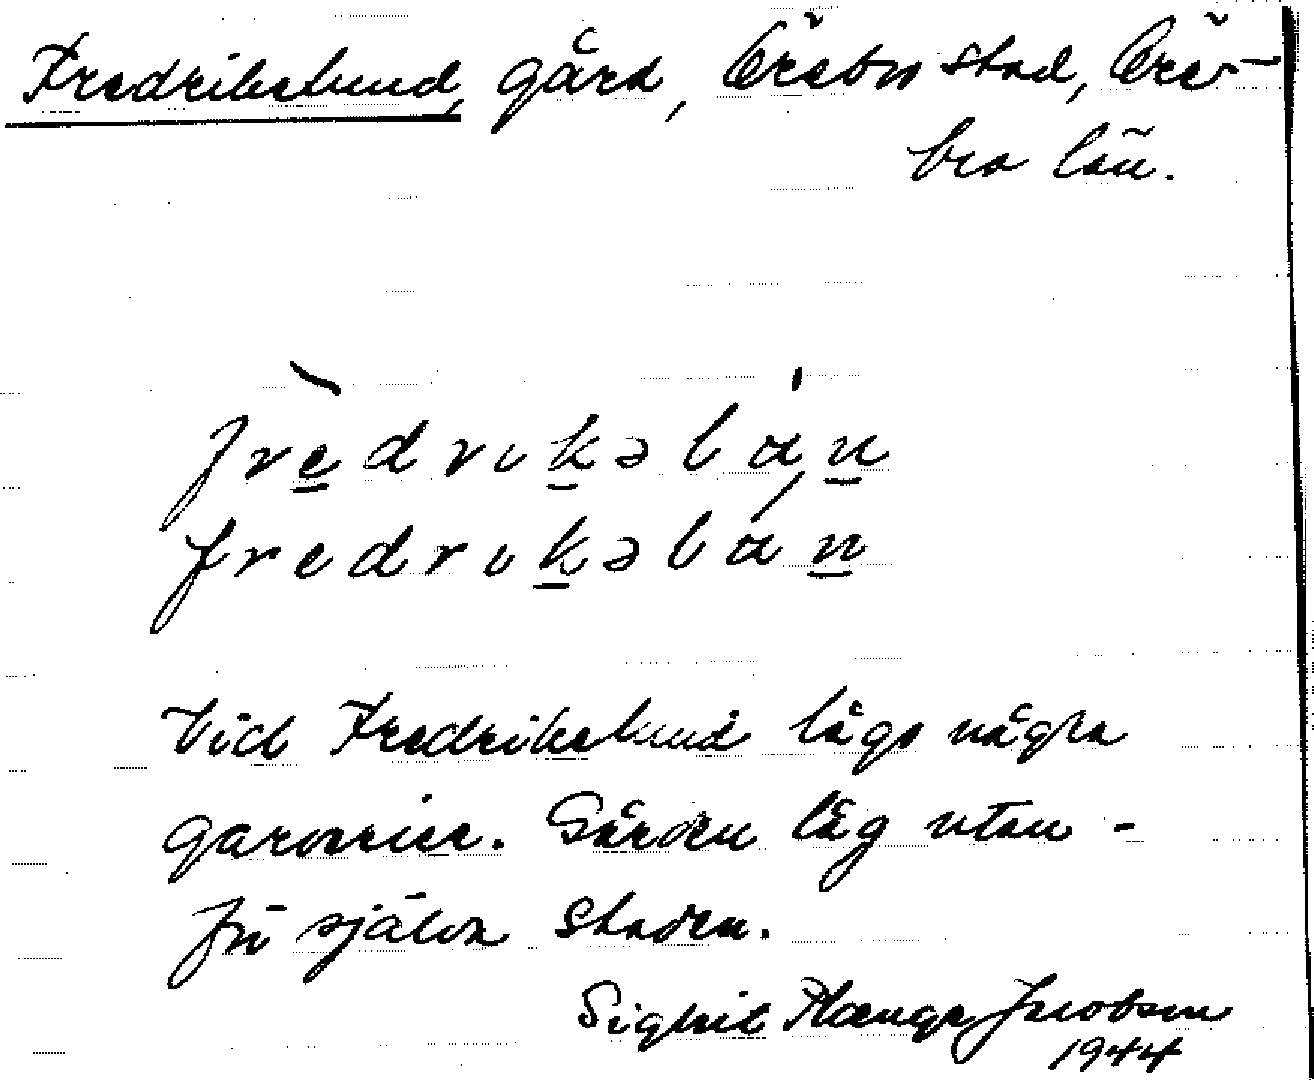 Fredrikslund, gård, Örebro stad, Öre-
bro län.
fre̲drik̲əlan̲
fredrik̲əlán̲
Vid Fredrikslund lågo några
garverier. Gården låg utan-
för själva staden.
Sigrid Jacobson
1944